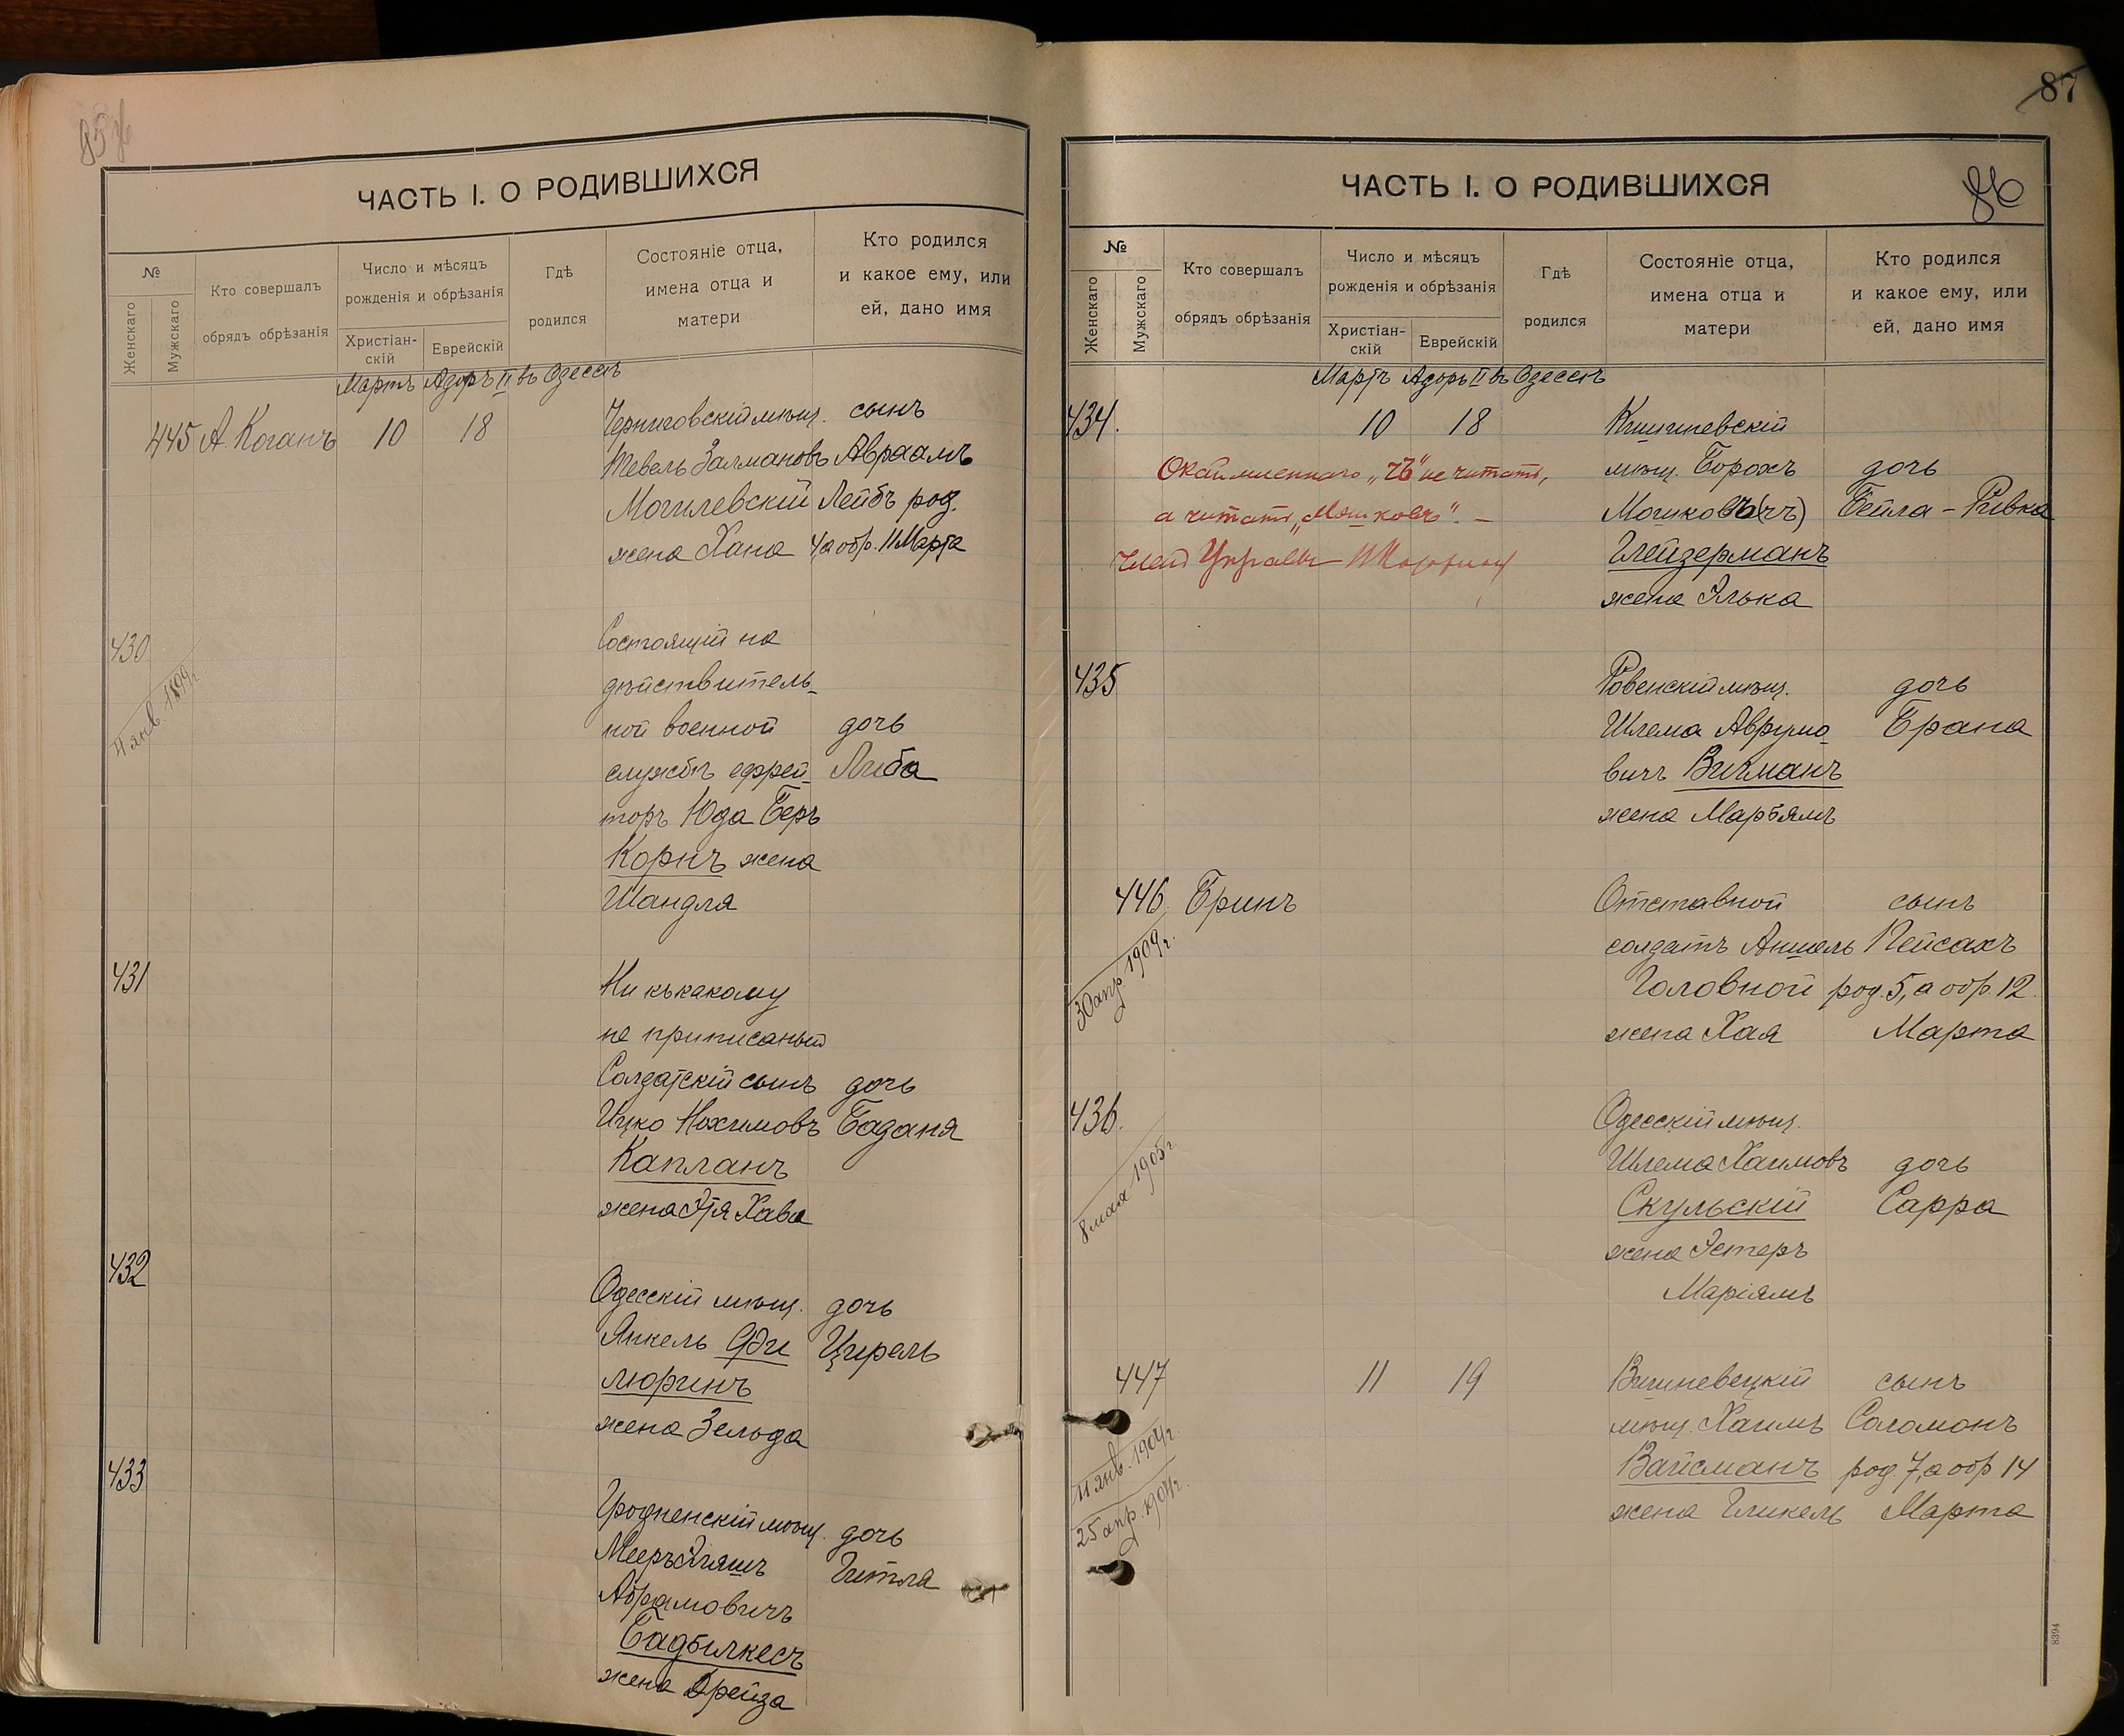 ЧАСТЬ I. О РОДИВШИХСЯ
№
Женскаго
Мужскаго
Кто совершалъ
обрядъ обрѣзанія
Число и мѣсяцъ
рожденія и обрѣзанія
Христіан-
скій
Еврейскій
Гдѣ
родился
Состояніе отца,
имена отца и
матери
Кто родился
и какое ему, или
ей, дано имя
Мартъ Адаръ II въ Одессѣ
445 А. Коганъ 10 18 Черниговскій мѣщ. сынъ
Тевель Залмановъ Авраамъ
Могилевскій Лейбъ род.
жена Хана 4 а обр. 11 Марта
430
4 янв. 1899 г.
Состоящій на
дѣйствитель-
ной военной дочь
службѣ ефрей- Либа
торъ Юда Беръ
Корнъ жена
Шандля
431
Ни къ какому
не приписаный
Солдатскій сынъ дочь
Ицко Нохимовъ Баданя
Капланъ
жена Этя Хава
432
Одесскій мѣщ. дочь
Янкель Фди Цирель
люринъ
жена Зельда
433
Гродненскій мѣщ. дочь
Мееръ Эліяшъ Гитля
Абрамовичъ
Бадылкесъ
жена Фрейза
87
ЧАСТЬ I. О РОДИВШИХСЯ
86
№
Женскаго
Мужскаго
Кто совершалъ
обрядъ обрѣзанія
Число и мѣсяцъ
рожденія и обрѣзанія
Христіан-
скій
Еврейскій
Гдѣ
родился
Состояніе отца,
имена отца и
матери
Кто родился
и какое ему, или
ей, дано имя
Мартъ Адаръ II въ Одессѣ
434. 10 18 Кишиневскій
мѣщ. Борохъ дочь
Мошковъ(чъ) Бейла - Ривка
Глейзерманъ
жена Элька
Окаймленнаго „чъ" не читать,
а читать „Мошковъ". —
Член Управы
435
Ровенскій мѣщ. дочь
Шлема Аврумо- Брана
вичъ Вигманъ
жена Марьямъ
446 Бринъ Отставной сынъ
30 апр. 1909 г.
солдатъ Аншель Пейсахъ
Головной род. 5, а обр. 12
жена Хая Марта
436.
8 мая 1905 г.
Одесскій мѣщ.
Шлема Хаимовъ дочь
Скульскій Сарра
жена Эстеръ
Маріямъ
447 11 19 Вишневецкій сынъ
11 янв. 1904 г.
25 апр. 1904 г.
мѣщ. Хаимъ Соломонъ
Вайсманъ род. 7, а обр 14
жена Гликель Марта
8394